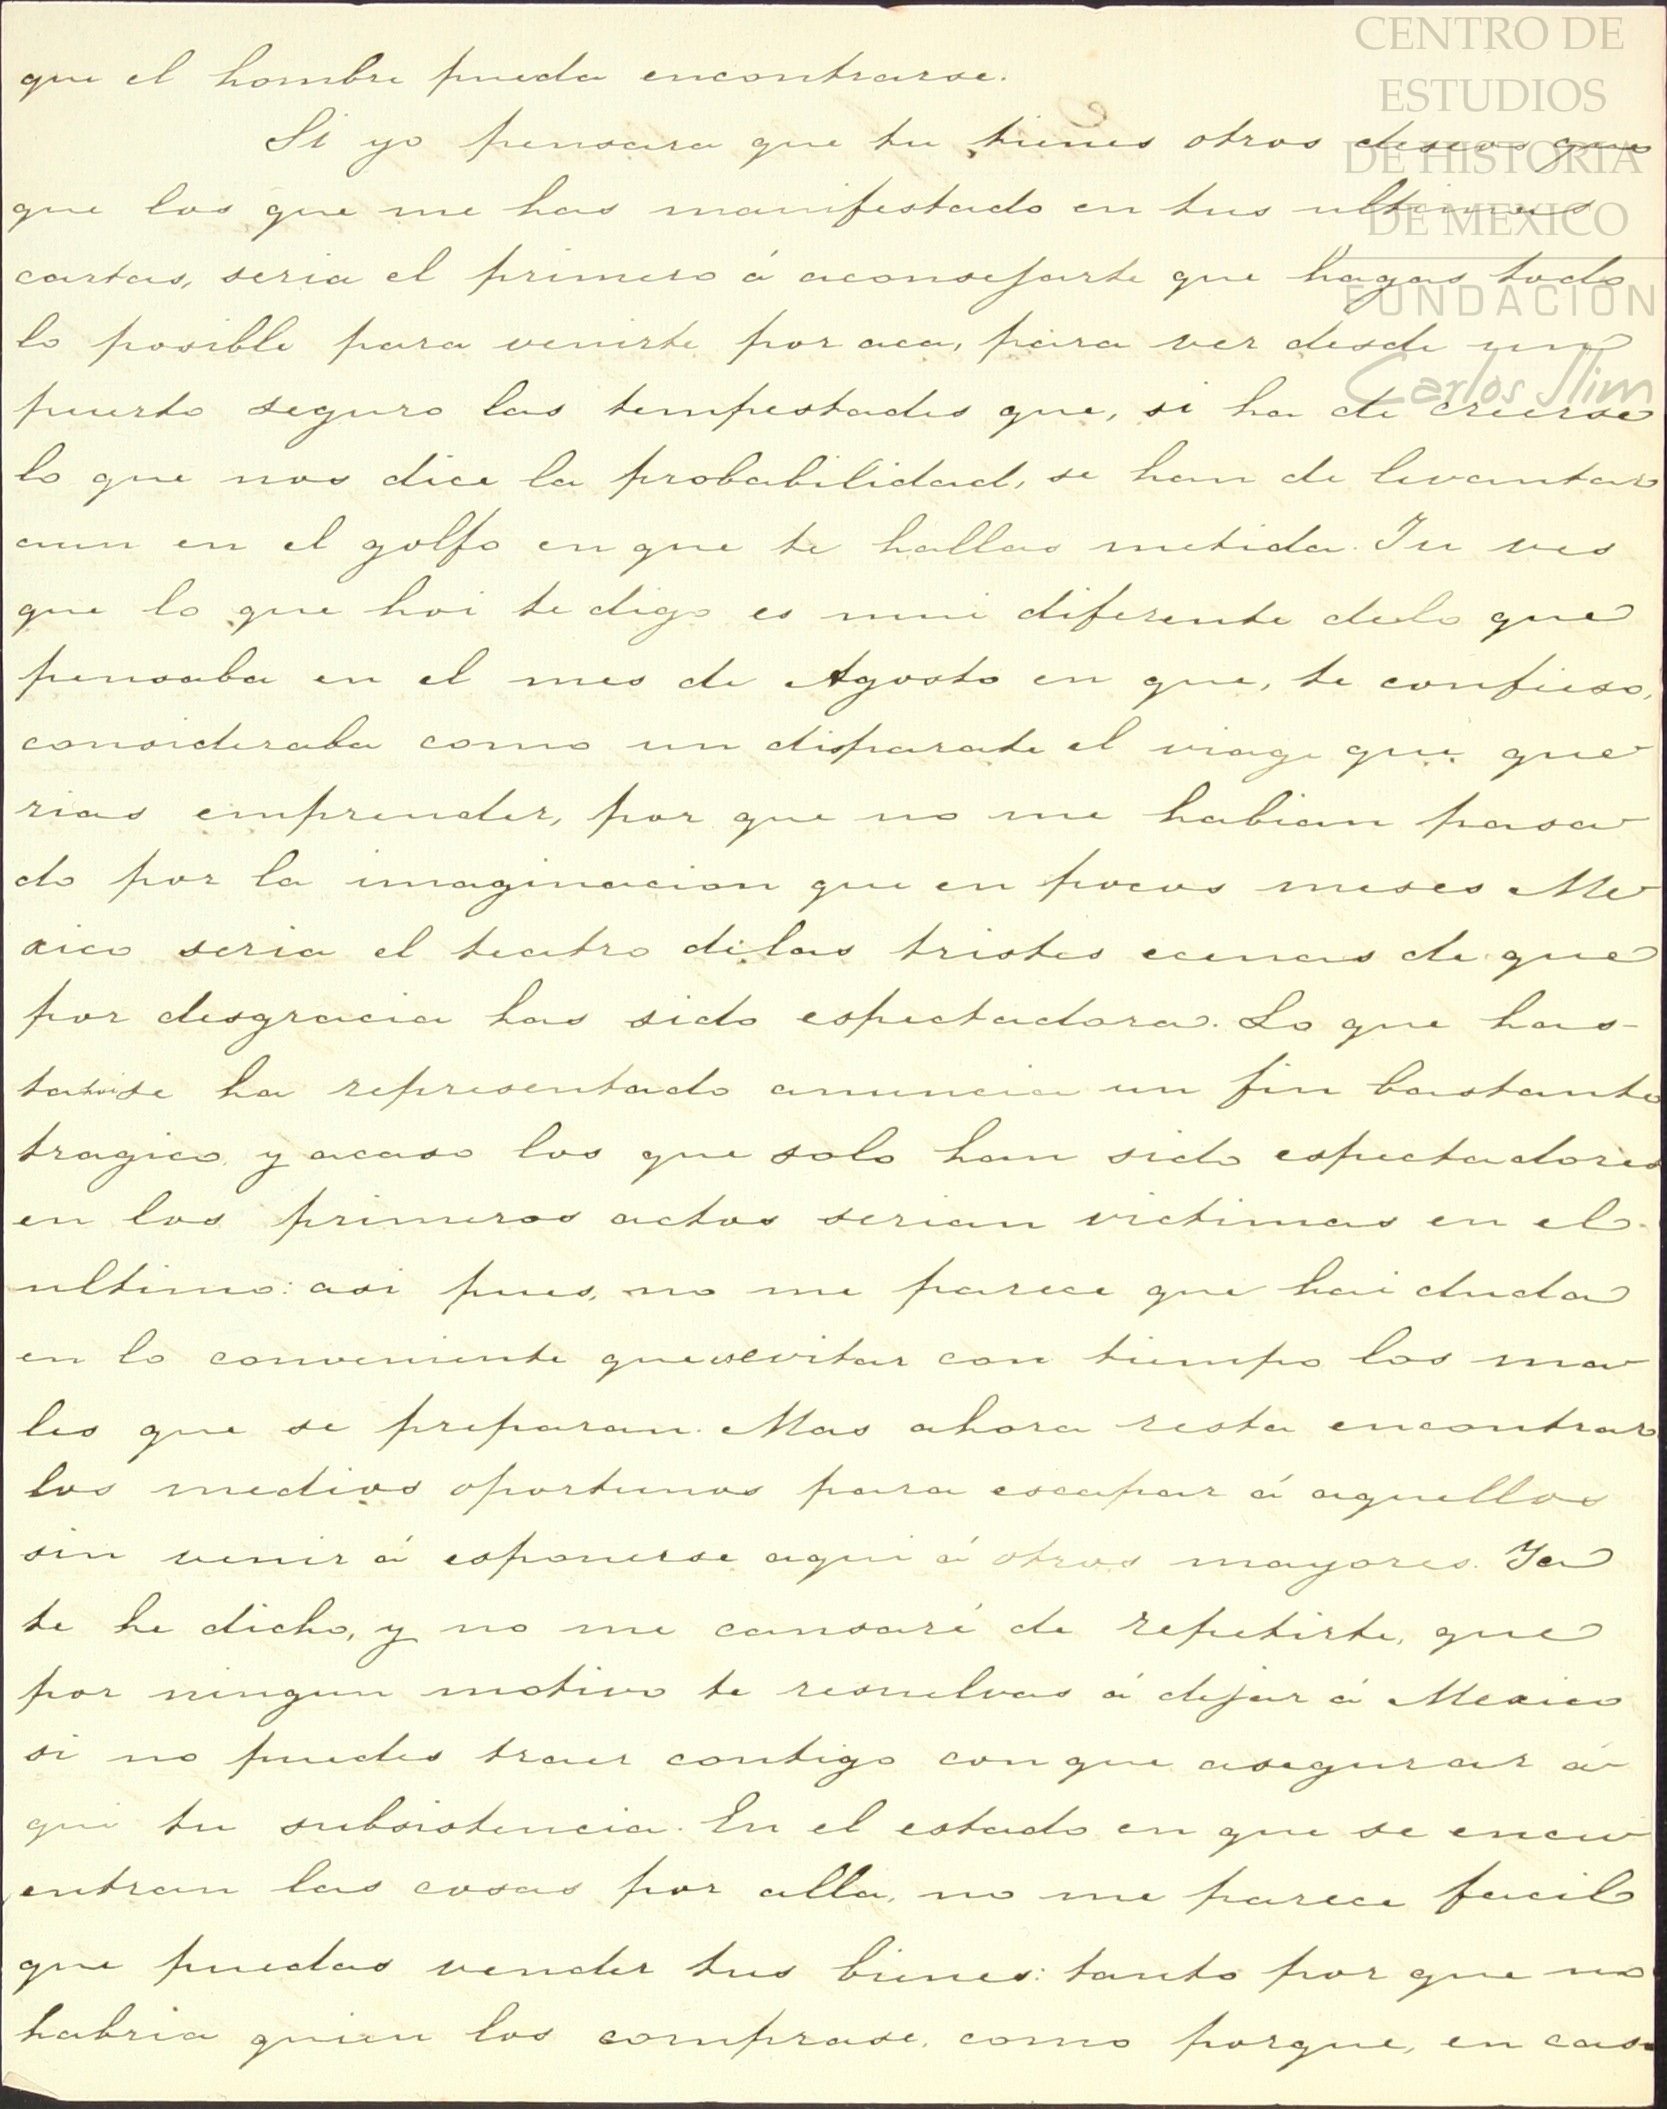 CENTRO DE
ESTUDIOS
DE HISTORIA
DE MEXICO
FUNDACIÓN
Carlos Slim
que el hombre pueda encontrarse.
Si yo pensara que tu tienes otros deseos que
que los que me has manifestado en tus ultimas
cartas, seria el primero á aconsejarte que hagas todo
lo posible para venirte por aca, para ver desde un
puerto seguro las tempestades que, si ha de creerse
lo que nos dice la probabilidad, se han de levantar
aun en el golfo en que te hallas metida. Tu ves
que lo que hoi te digo es mui diferente delo que
pensaba en el mes de Agosto en que, te confieso,
consideraba como un disparate el viage que que
rias emprender, por que no me habian pasa
do por la imaginacion que en pocos meses Me
xico seria el teatro delas tristes ecenas de que
por desgracia has sido espectadora. Lo que has-
ta hoi se ha representado anuncia un fin bastante
tragico, y acaso los que solo han sido espectadores
en los primeros actos serian victimas en el
ultimo: asi pues, no me parece que hai duda
en lo conveniente que es evitar con tiempo los ma
les que se preparan. Mas ahora resta encontrar
los medios oportunos para escapar á aquellos
sin venir á esponerse aqui á otros mayores. Ya
te he dicho, y no me cansaré de repetirte, que
por ningun motivo te resuelvas á dejar á Mexico
si no puedes traer contigo con que asegurar a
qui tu subsistencia. En el estado en que se encu
entran las cosas por alla, no me parece facil
que puedas vender tus bienes: tanto por que no
habria quien los comprase, como porque, en caso